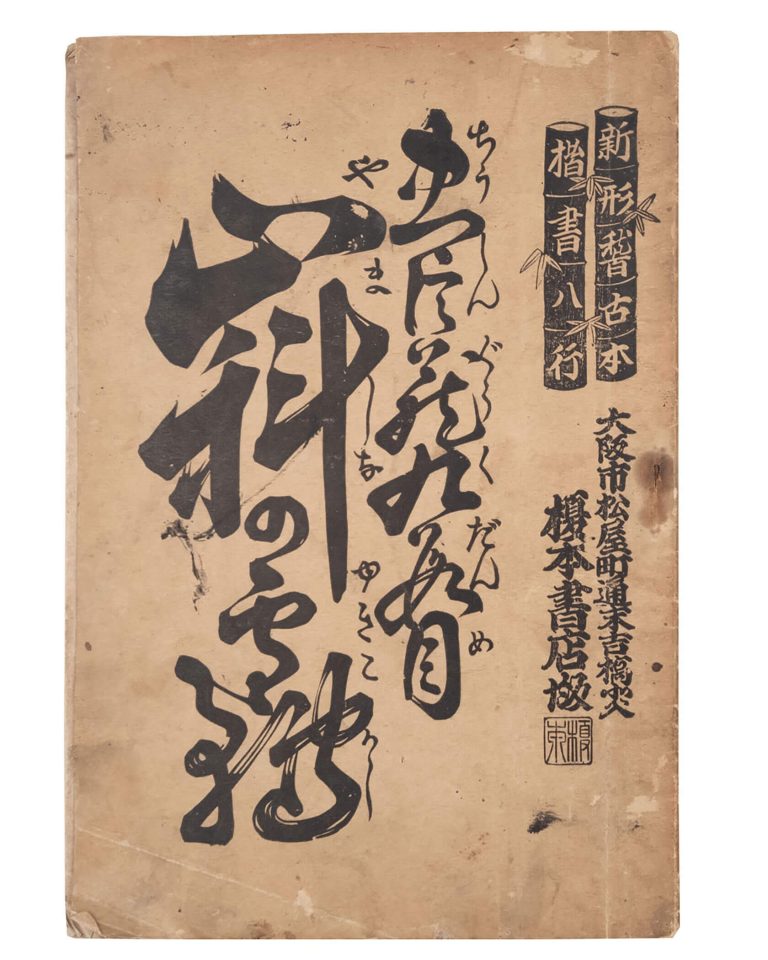 新形稽古本
楷書八行
大阪市松屋町通末吉橋
榎本書店
ちうしんぐらくだんめ
忠臣蔵九段目
やましなゆきこかし
山科の雪轉